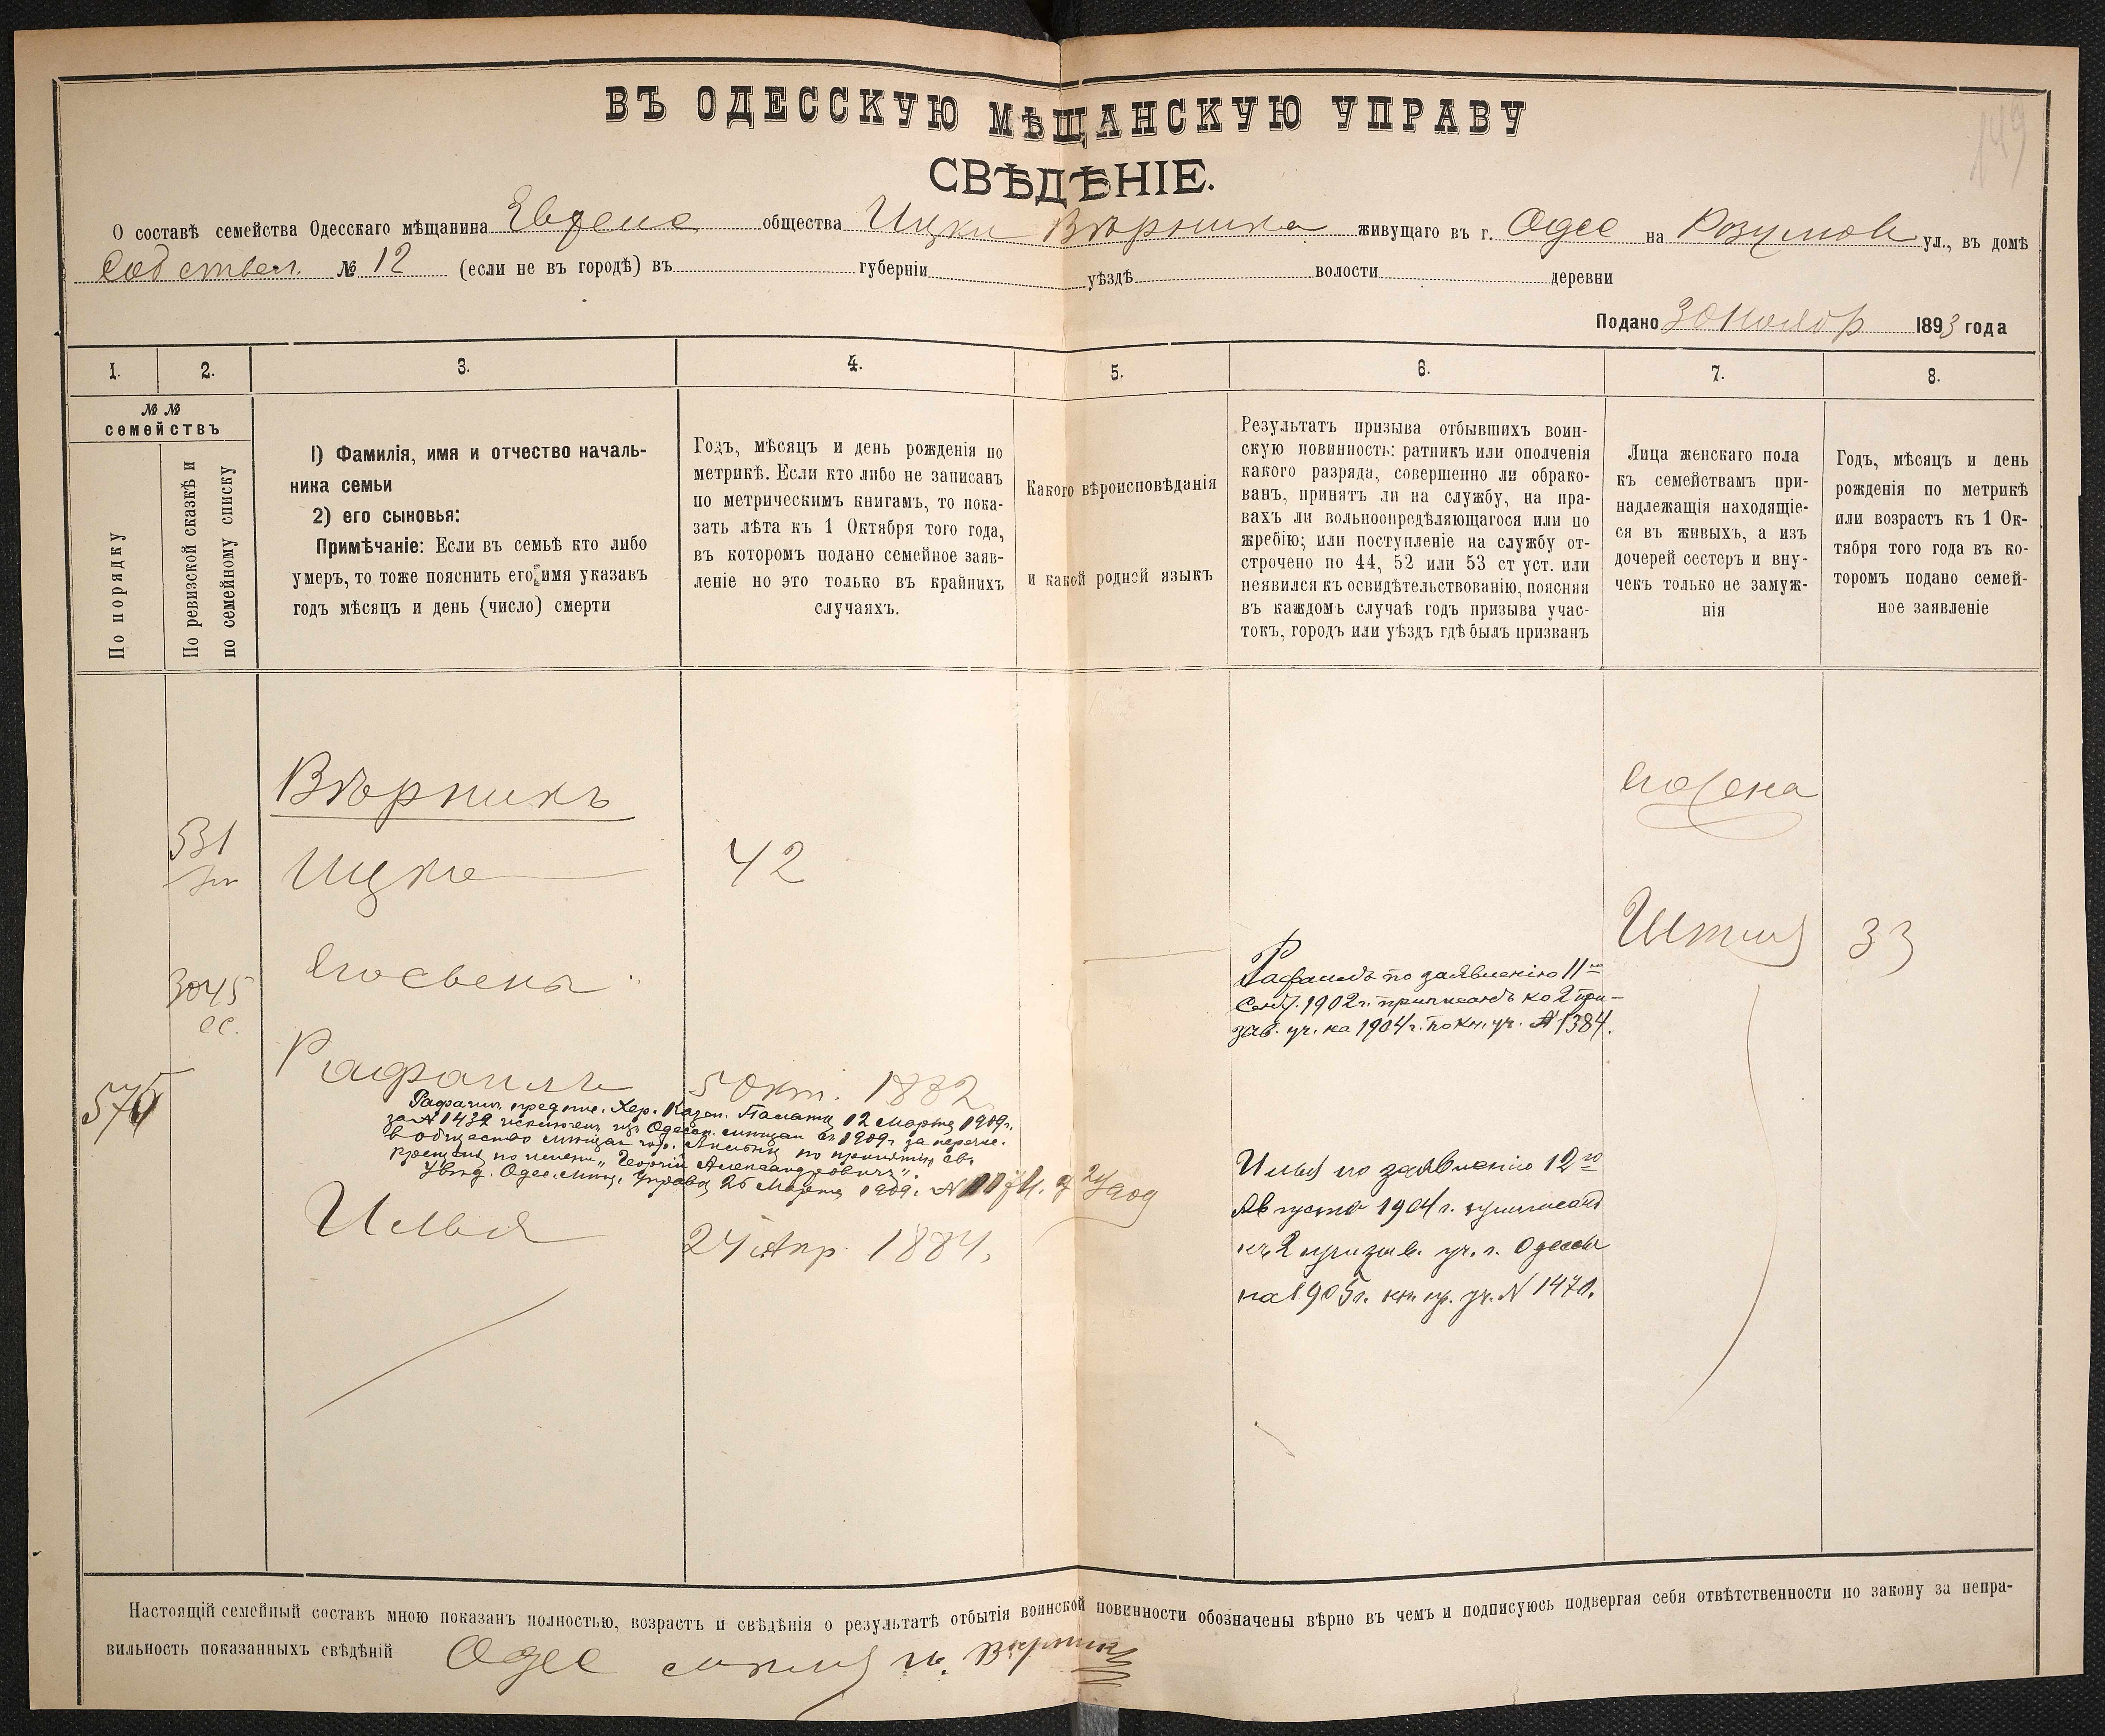 149
ВЪ ОДЕССКУЮ МѢЩАНСКУЮ УПРАВУ
СВѢДѢНІЕ.
О составѣ семейства Одесскаго мѣщанина Еврейс общества Ицки Вѣрника живущаго въ г. Одес на Розумов ул., въ домѣ
Собствен. № 12 (если не въ городѣ) въ губерніи уѣздѣ волости деревни
Подано 30 Ноябр 1893 года
1. 2. 3. 4. 5. 6. 7. 8.
№ №
семействъ
По порядку
По ревизской сказкѣ и
по семейному списку
1) Фамилія, имя и отчество началь-
ника семьи
2) его сыновья:
Примѣчаніе: Если въ семьѣ кто либо
умеръ, то тоже пояснить его имя указавъ
годъ мѣсяцъ и день (число) смерти
Годъ, мѣсяцъ и день рожденія по
метрикѣ. Если кто либо не записанъ
по метрическимъ книгамъ, то пока-
зать лѣта къ 1 Октября того года,
въ которомъ подано семейное заяв-
леніе но это только въ крайнихъ
случаяхъ.
Какого вѣроисповѣданія
и какой родной языкъ
Результатъ призыва отбывшихъ воин-
скую повинность: ратникъ или ополченія
какого разряда, совершенно ли обрако-
ванъ, принятъ ли на службу, на пра-
вахъ ли вольноопредѣляющагося или по
жребію; или поступленіе на службу от-
строчено по 44, 52 или 53 ст уст. или
неявился къ освидѣтельствованію, поясняя
въ каждомъ случаѣ годъ призыва учас-
токъ, городъ или уѣздъ гдѣ былъ призванъ
Лица женскаго пола
къ семействамъ при-
надлежащія находящіе-
ся въ живыхъ, а изъ
дочерей сестеръ и вну-
чекъ только не замуж-
нія
Годъ, мѣсяцъ и день
рожденія по метрикѣ
или возрастъ къ 1 Ок-
тября того года въ ко-
торомъ подано семей-
ное заявленіе
Вѣрникъ
531
Ицко 42
3045
сс.
576
Рафаилъ 5 Окт. 1882
Рафаилъ предпис. Хер. Казен. Палаты 12 Марта 1909г.
за № 1432 исключенъ изъ Одесск. мѣщан съ 1909г. за перечис.
въ общество мѣщан гор. по принятіи св.
крещенія по имени „Георгій Александровичъ".
Увѣд. Одес. мѣщ. Управы 26 Марта 1909г. №
Илья 24 Апр. 1884.
Рафаилъ по заявленію 11го
Сент. 1902г. приписанъ ко 2 при-
зыв. уч. на 1904г. по кн. уч. № 1384.
Илья по заявленію 12го
Августа 1904г. приписанъ
къ 2 призыв. уч. г. Одессы
на 1905г. кн. пр. уч. № 1470.
жена
33
Настоящій семейный составъ мною показанъ полностью, возрастъ и свѣдѣнія о результатѣ отбытія воинской повинности обозначены вѣрно въ чемъ и подписуюсь подвергая себя отвѣтственности по закону за непра-
вильность показанныхъ свѣдѣній Одес И. Вѣрникъ